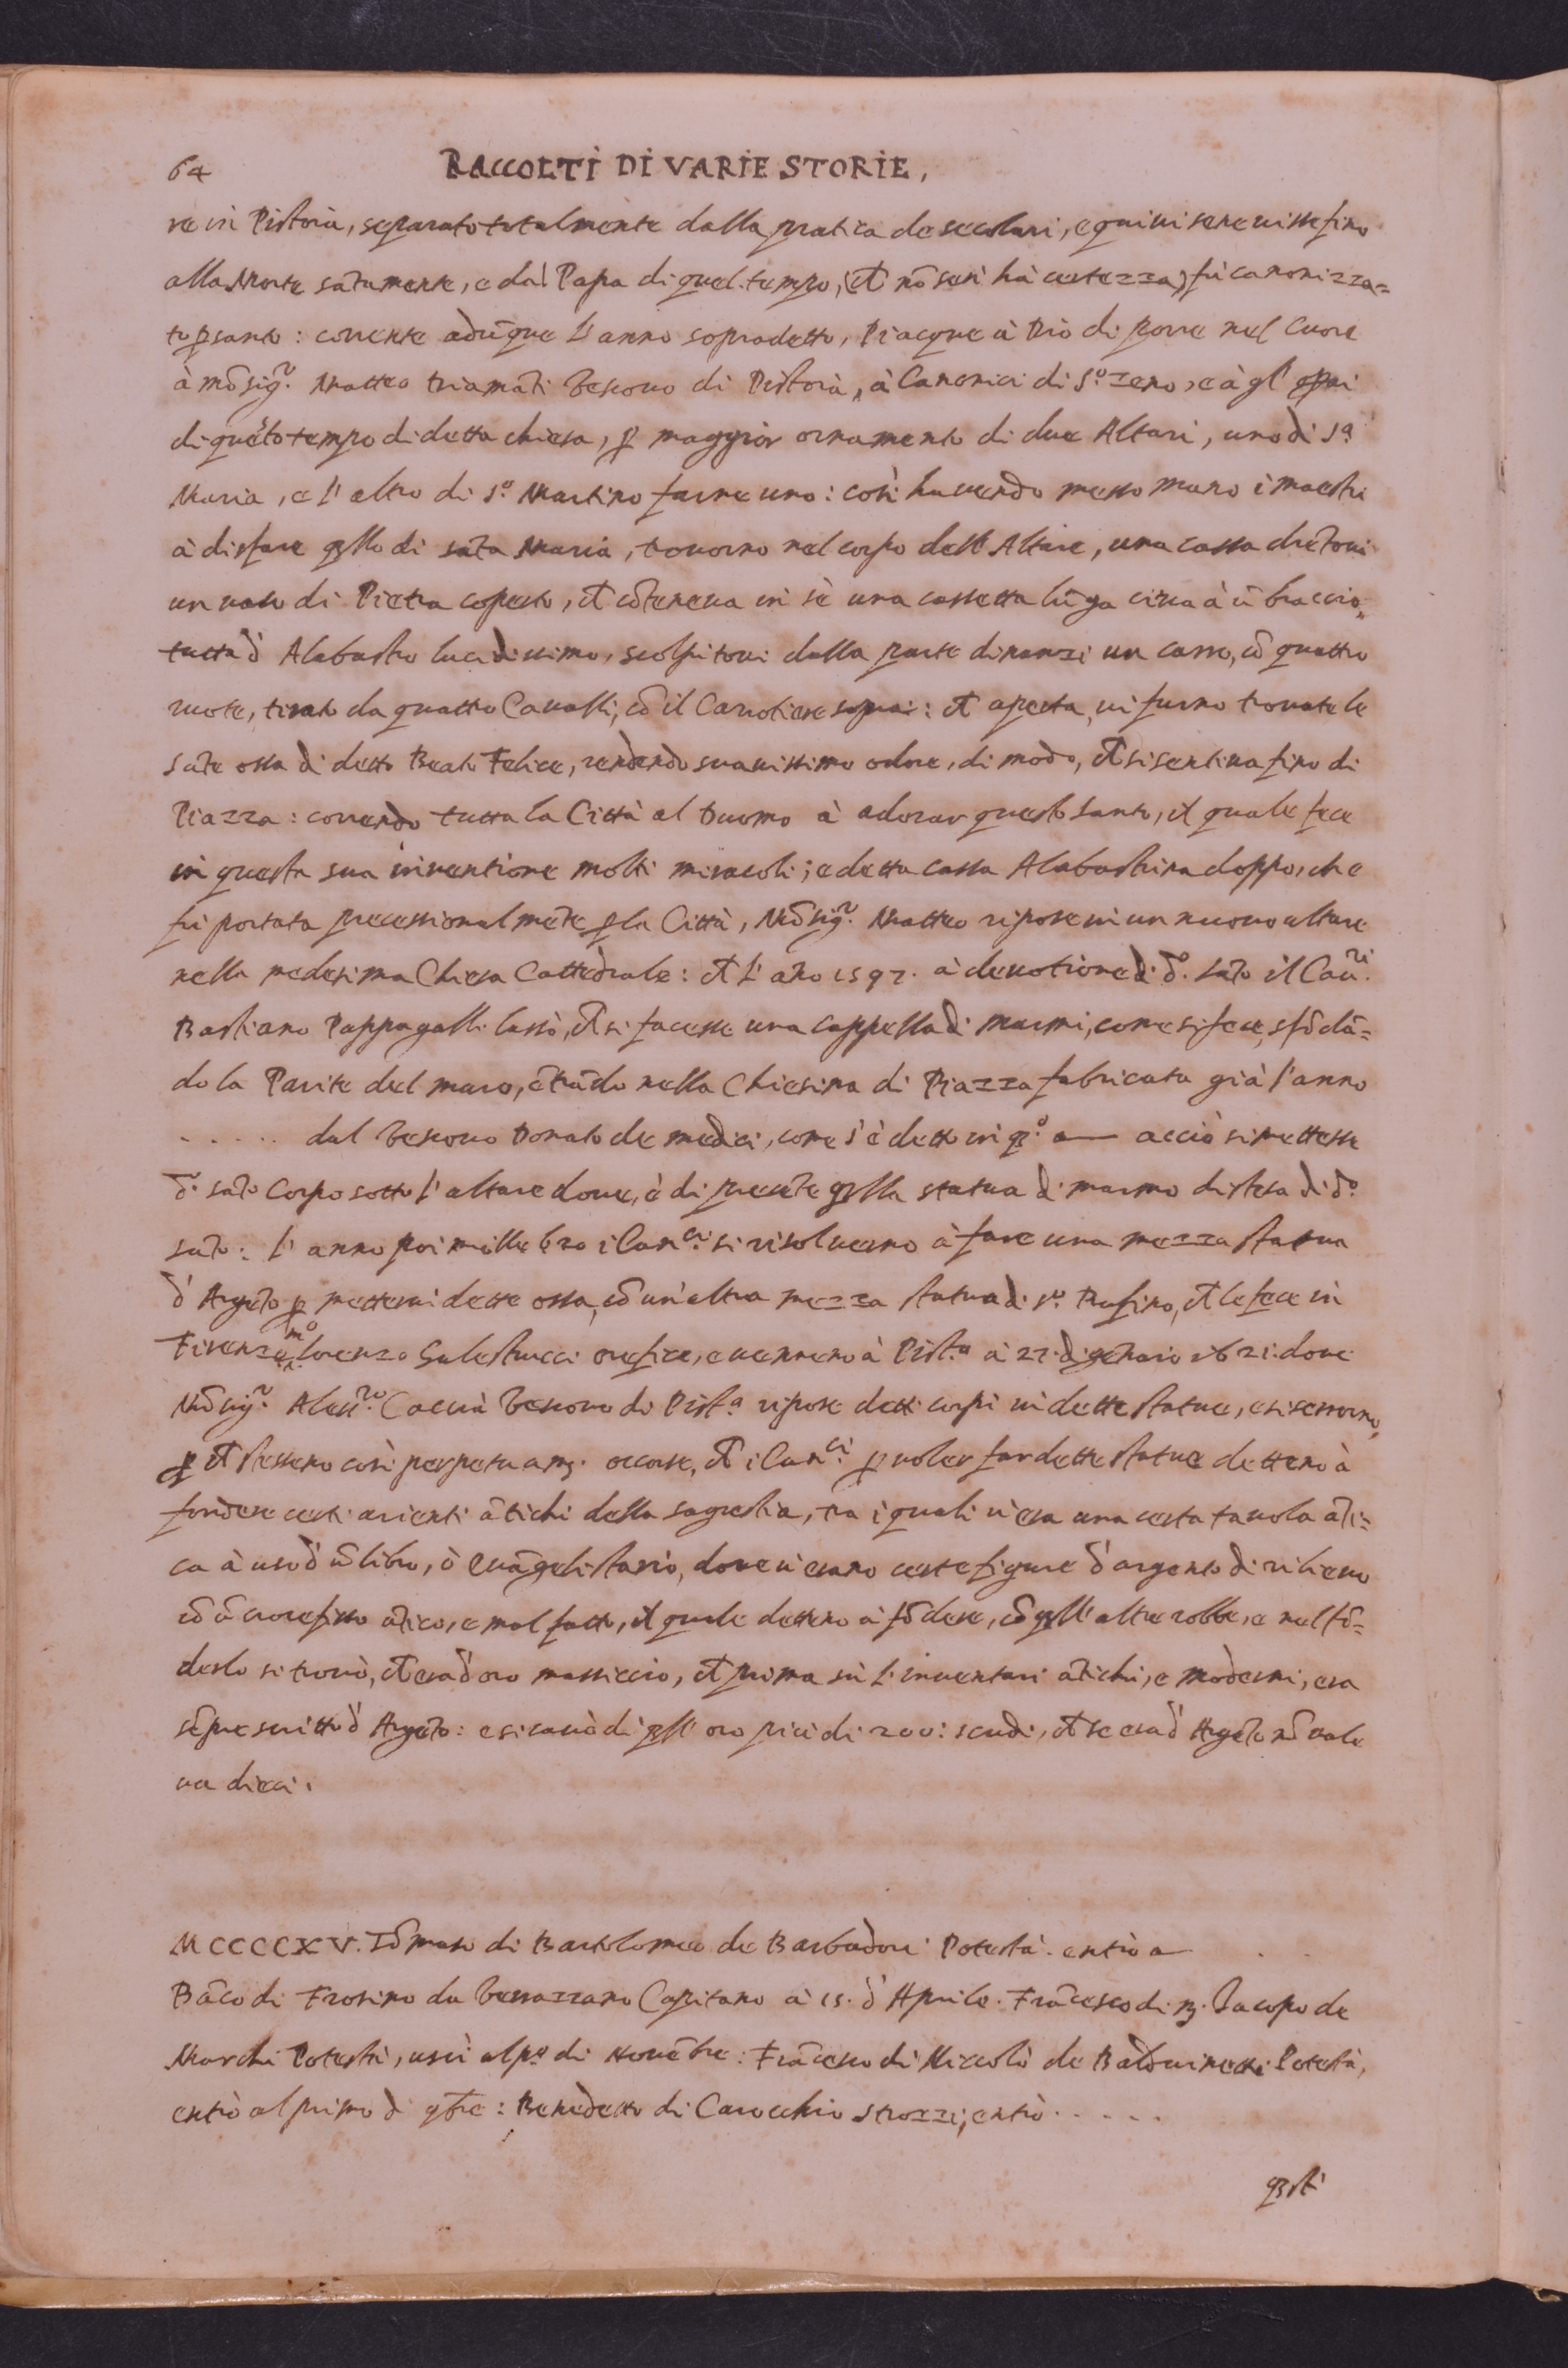 64 RACCOLTI DI VARIE STORIE,
re in Pistoia, separato totalmente dalla pratica de secolari, e quiui se ne uisse fino
alla Morte sātamente, e dal Papa di quel tempo, (ch̄ nō sen' hà certezza) fù canonizza=
to ꝑ santo: corrente adūque l' anno sopradetto, Piacque à Dio di porre nel Cuore
à mōsigr̃. Matteo Diamāti Vescouo di Pistoia, à Canonici di S.º Zeno, e à gl' opai
di quēto tempo di detta chiesa, ꝑ maggior ornamento di due Altari, uno di S.ª
Maria, e l' altro di S.º Martino farne uno: così hauendo messo mano i maestri
à disfare qllo di sāta Maria, trouorno nel corpo dell' Altare, una cassa drētoui
un uaso di Pietra coperto, ch̄ cōteneua in sè una cassetta lūga circa à ū braccio,
tutta d' Alabastro lucidissimo, scolpitoui dalla parte dinanzi un carro, cō quattro
ruote, tirato da quattro Caualli, cō il Carrotiere sopra: ch̄ aperta, ui furno trouate le
sāte ossa di detto Beato Felice, rendendo suauissimo odore, di modo, ch̄ si sentiua fino di
Piazza: correndo tutta la Città al Duomo à adorar questo santo, il quale fece
in questa sua inuentione molti miracoli; e detta cassa Alabastrina doppo, che
fù portata processionalmēte ꝑ la Città, Mōsigr̃. Matteo ripose in un nuouo altare
nella medesima Chiesa Cattedrale: ch̄ l' āno 1597. à deuotione di d.º sāto il Cau.ri
Bastiano Pappagalli lassò, ch̄ si facesse una cappella di marmi, come si fece, sfōdā=
do la Parite del muro, ētrādo nella Chiesina di Piazza fabricata già l' anno
. . . . . dal Vescouo Donato de medici, come s' è detto in qº a — acciò si mettesse
d.º sāto Corpo sotto l' altare doue, è di presēte qlla statua di marmo distesa di d.º
sāto: l' anno poi mille 620 i Can.ci si risolueono à fare una mezza statua
d' Argēto ꝑ metterui dette ossa, cō un' altra mezza statua di S.º Rufino, ch̄ le fece in
Firenze m.º Lorenzo Galestrucci orefice, e uennero à Pist.ª à 27. di genaio 1621. doue
Mōsigr̃. Aless.ro Caccia Vescouo di Pist.ª ripose detti corpi in dette statue, e si serrorno,
ꝑ ch̄ stessero così perpetuamʒ. occorse, ch̄ i Can.ci ꝑ uoler far dette statue dettero à
fondere certi arienti ātichi della sagrestia, tra i quali u' era una certa tauola āti=
ca à uso d' ū libro, ò euāgelistario, doue u' erano certe figure d' argento di rilieuo
cō ū crocefisso ātico, e mal fatto, il quale dettero à fōdere, cō qll' altre robbe, e nel fō=
derlo si trouò, ch̄ era d' oro massiccio, ch̄ prima sù l' inuentari ātichi, e moderni, era
sēpre scritto d' Argēto: e si cauò di qll' oro più di 200: scudi, ch̄ se era d' Argēto nō uale
ua dieci.
MCCCCXV. Tōmaso di Bartolomeo de Barbadori Potestà. entrò a — . .
Bāco di Frosino da Verrazzano Capitano à 15. d' Aprile. Frācesco di ʒ. Iacopo de
Marchi Potestà, uscì al pº di Nouēbre: Frācesco di Niccolò de Baldouinetti Potestà,
entrò al primo di 9bre: Benedetto di Carocchio Strozzi, entrò . . . . .
qsti